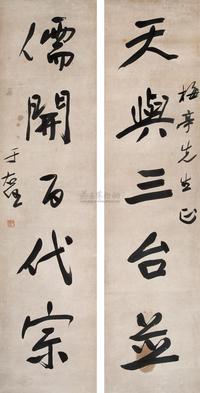 梅亭先生正
天與三台並
儒開百代宗
于右任